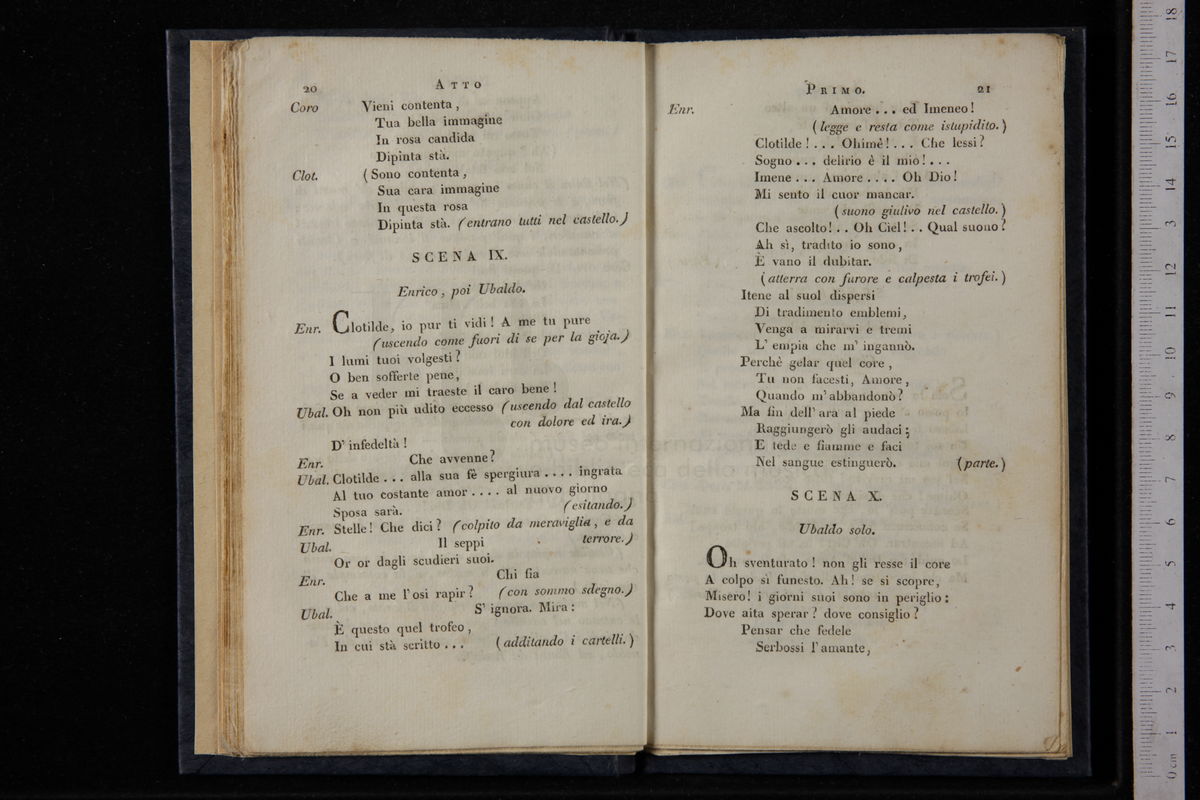 20
ATTO
Coro Vieni contenta,
Tua bella immagine
In rosa candida
Dipinta stà.
Clot. (Sono contenta,
Sua cara immagine
In questa rosa
Dipinta stà. (entrano tutti nel castello.)
SCENA IX.
Enrico, poi Ubaldo.
Enr. Clotilde, io pur ti vidi! A me tu pure
(uscendo come fuori di se per la gioja.)
I lumi tuoi volgesti?
O ben sofferte pene,
Se a veder mi traeste il caro bene!
Ubal. Oh non più udito eccesso (uscendo dal castello
con dolore ed ira.)
D' infedeltà!
Enr. Che avvenne?
Ubal. Clotilde... alla sua fè spergiura.... ingrata
Al tuo costante amor.... al nuovo giorno
Sposa sarà. (esitando.)
Enr. Stelle! Che dici? (colpito da meraviglia, e da
Ubal. Il seppi terrore.)
Or or dagli scudieri suoi.
Enr. Chi fia
Che a me l'osi rapir? (con sommo sdegno.)
Ubal. S' ignora. Mira:
È questo quel trofeo,
In cui stà scritto... (additando i cartelli.)
PRIMO.
21
Enr. Amore... ed Imeneo!
(legge e resta come istupidito.)
Clotilde!... Ohimè!... Che lessi?
Sogno... delirio è il mio!...
Imene... Amore.... Oh Dio!
Mi sento il cuor mancar.
(suono giulivo nel castello.)
Che ascolto!.. Oh Ciel!.. Qual suono?
Ah sì, tradito io sono,
È vano il dubitar.
(atterra con furore e calpesta i trofei.)
Itene al suol dispersi
Di tradimento emblemi,
Venga a mirarvi e tremi
L' empia che m' ingannò.
Perchè gelar quel core,
Tu non facesti, Amore,
Quando m' abbandonò?
Ma fin dell' ara al piede
Raggiungerò gli audaci;
E tede e fiamme e faci
Nel sangue estinguerò. (parte.)
SCENA X.
Ubaldo solo.
Oh sventurato! non gli resse il core
A colpo sì funesto. Ah! se si scopre,
Misero! i giorni suoi sono in periglio:
Dove aita sperar? dove consiglio?
Pensar che fedele
Serbossi l'amante,
0 cm 1 2 3 4 5 6 7 8 9 10 11 12 13 14 15 16 17 18